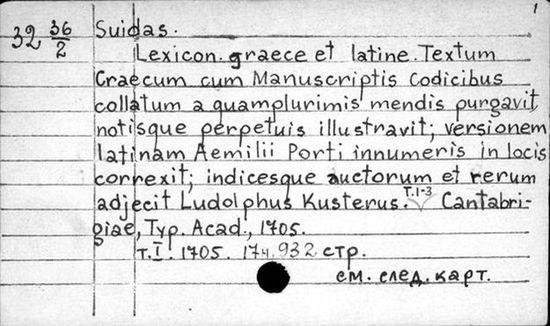 1
32 36/2 Suidas.
Lexicon. graece et latine. Textum
Craecum cum Manuscriptis Codicibus
collatum a quamplurimis mendis purgavit
notisque perpetuis illustravit; versionem
latinam Aemilii Porti innumeris in locis
correxit; indicesque auctorum et rerum
adjecit Ludolphus Kusterus. T.1-3 Cantabri-
giae, Typ. Acad., 1705.
т.I. 1705. 174, 932 стр.
см. след. карт.